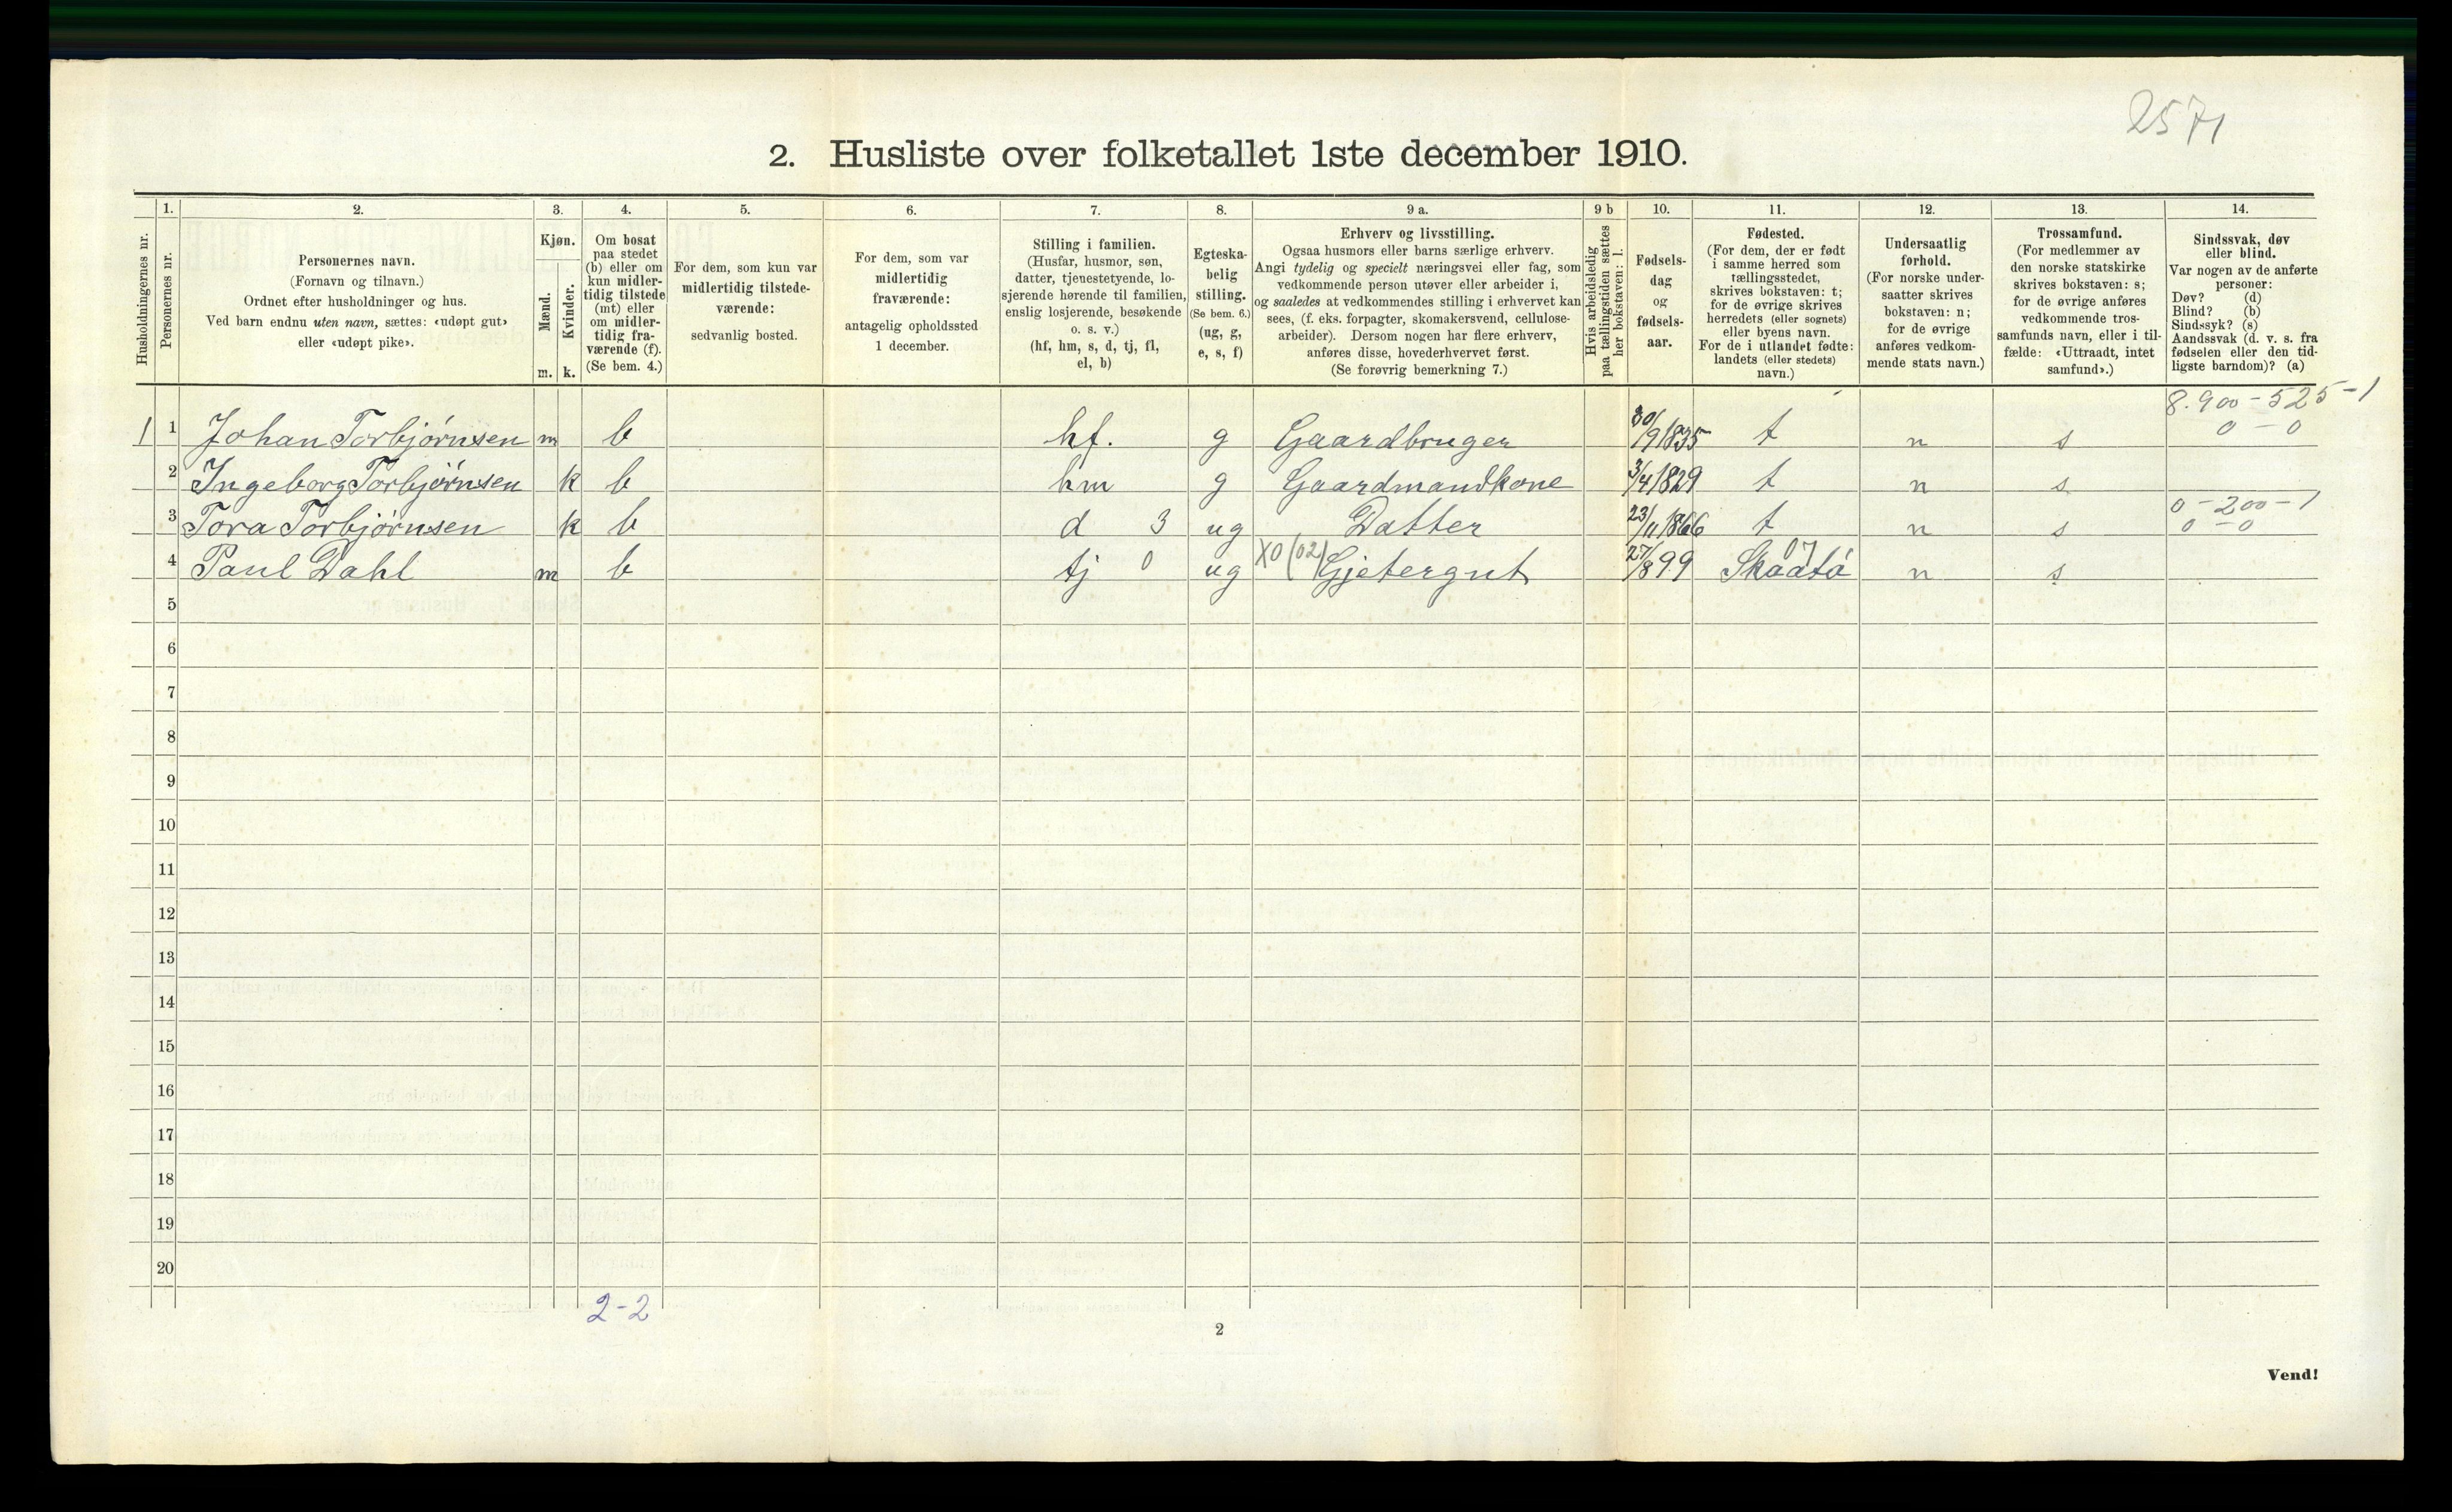 2571
2. Husliste over folketallet 1ste december 1910.
1. 2. 3. 4. 5. 6. 7. 8. 9 a. 9 b 10. 11. 12. 13. 14.
Husholdningernes nr.
Personernes nr.
Personernes navn.
(Fornavn og tilnavn.)
Ordnet efter husholdninger og hus.
Ved barn endnu uten navn, sættes: «udøpt gut»
eller «udøpt pike».
Kjøn.
Mænd.
Kvinder.
m. k.
Om bosat
paa stedet
(b) eller om
kun midler-
tidig tilstede
(mt) eller
om midler-
tidig fra-
værende (f).
(Se bem. 4.)
For dem, som kun var
midlertidig tilstede-
værende:
sedvanlig bosted.
For dem, som var
midlertidig
fraværende:
antagelig opholdssted
1 december.
Stilling i familien.
(Husfar, husmor, søn,
datter, tjenestetyende, lo-
sjerende hørende til familien,
enslig losjerende, besøkende
o. s. v.)
(hf, hm, s, d, tj, fl,
el, b)
Egteska-
belig
stilling.
(Se bem. 6.)
(ug, g,
e, s, f)
Erhverv og livsstilling.
Ogsaa husmors eller barns særlige erhverv.
Angi tydelig og specielt næringsvei eller fag, som
vedkommende person utøver eller arbeider i,
og saaledes at vedkommendes stilling i erhvervet kan
sees, (f. eks. forpagter, skomakersvend, cellulose-
arbeider). Dersom nogen har flere erhverv,
anføres disse, hovederhvervet først.
(Se forøvrig bemerkning 7.)
Hvis arbeidsledig
paa tællingstiden sættes
her bokstaven: l.
Fødsels-
dag
og
fødsels-
aar.
Fødested.
(For dem, der er født
i samme herred som
tællingsstedet,
skrives bokstaven: t;
for de øvrige skrives
herredets (eller sognets)
eller byens navn.
For de i utlandet fødte:
landets (eller stedets)
navn.)
Undersaatlig
forhold.
(For norske under-
saatter skrives
bokstaven: n;
for de øvrige
anføres vedkom-
mende stats navn.)
Trossamfund.
(For medlemmer av
den norske statskirke
skrives bokstaven: s;
for de øvrige anføres
vedkommende tros-
samfunds navn, eller i til-
fælde: «Uttraadt, intet
samfund».)
Sindssvak, døv
eller blind.
Var nogen av de anførte
personer:
Døv? (d)
Blind? (b)
Sindssyk? (s)
Aandssvak (d. v. s. fra
fødselen eller den tid-
ligste barndom)? (a)
8.900-525-1
1 1 Johan Torbjørnsen m b hf. g Gaardbruger 30/9 1835 t n s 0-0
2 Ingeborg Torbjørnsen k b hm g Gaardmandkone 3/4 1829 t n s
0-200-1
3 Tora Torbjørnsen k b d 3 ug Datter 23/11 1866 t n s 0-0
X0 (02) 07
4 Paul Dahl m b tj 0 ug Gjetergut 27/8 99 Skaatø n s
5
6
7
8
9
10
11
12
13
14
15
16
17
18
19
20
2-2
2
Vend!